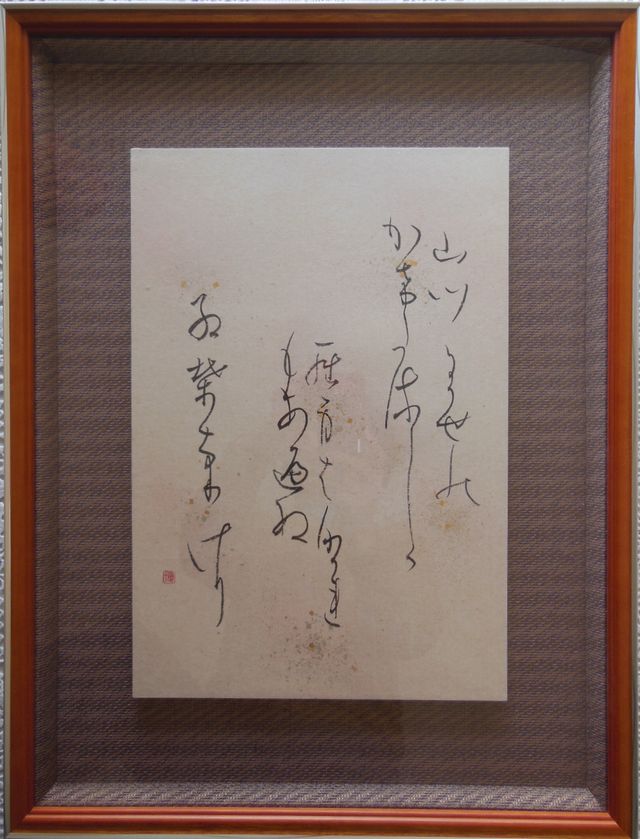 山川にかせの
かけたるしか
らみはなかれ
もあへぬ
紅葉なりけり